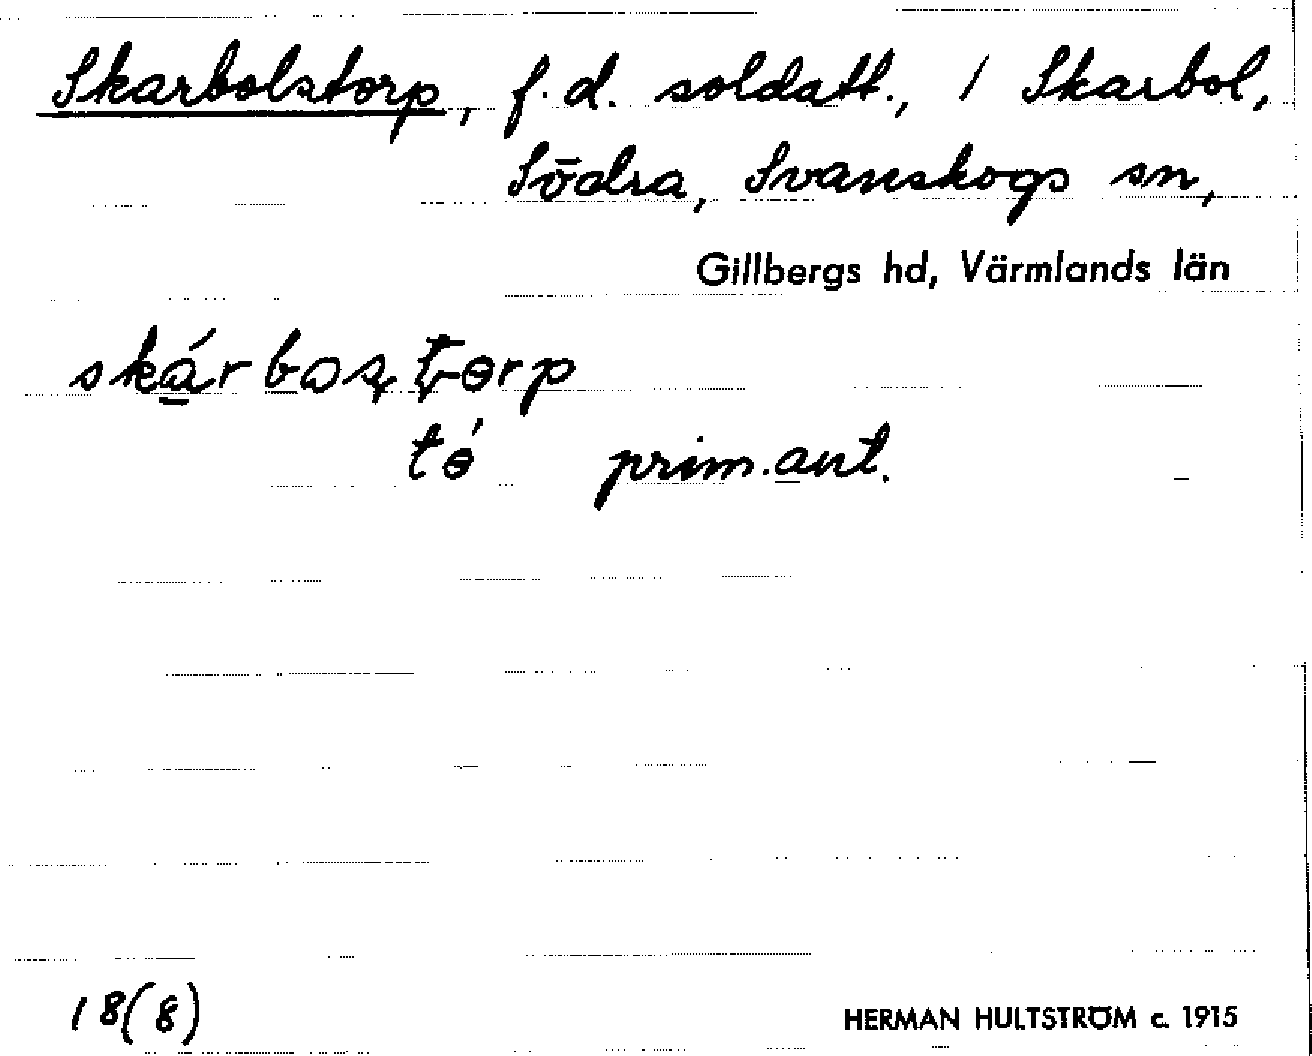 Skarbolstorp, f.d. soldatt., / Skarbol,
Södra, Svanskogs sn,
Gillbergs hd, Värmlands län
skárbosţorp
té prim.ant.
18(8)
HERMAN HULTSTRÖM c. 1915